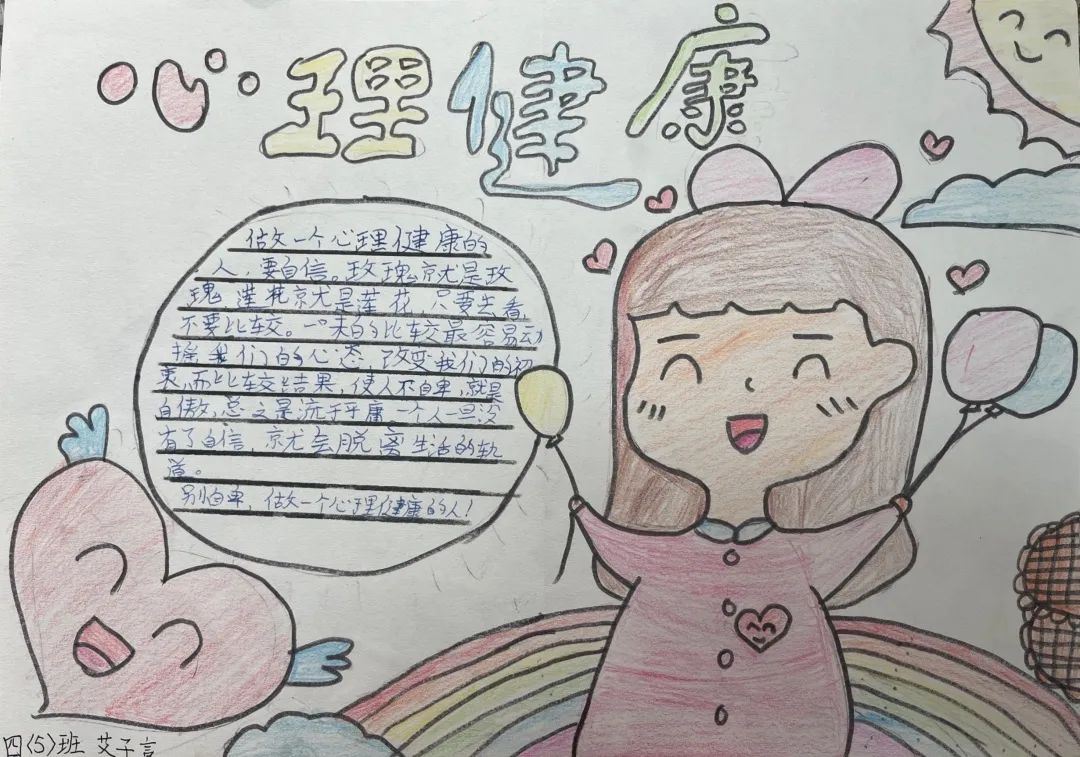 心理健康
做一个心理健康的
人，要自信。玫瑰就是玫
瑰，莲花就是莲花，只要去看，
不要比较。一味的比较最容易动
摇我们的心态，改变我们的初
衷，而比较结果，使人不自卑，就是
自傲，总之是流于平庸一个人一旦没
有了自信，就会脱离生活的轨
道。
别自卑，做一个心理健康的人！
四〈5〉班 艾子言